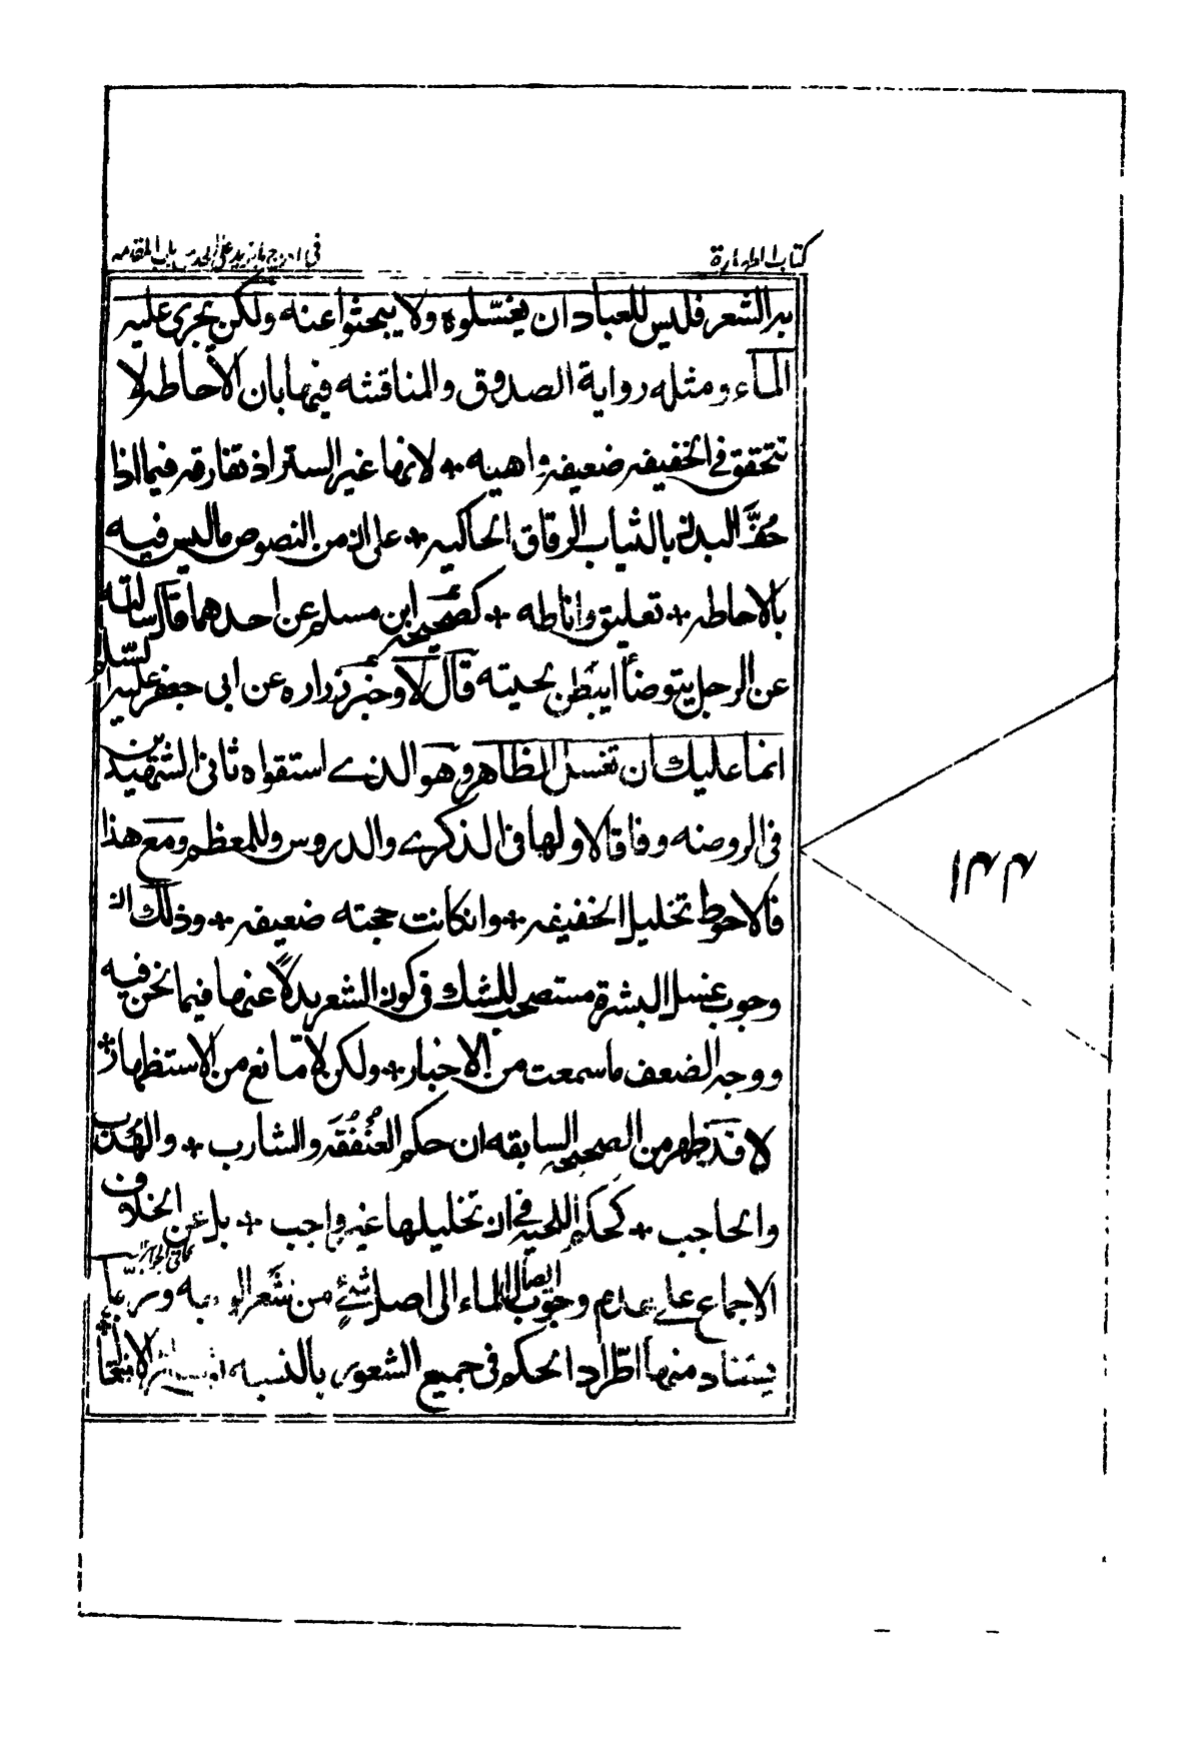 كتاب الطهارة
به الشعر فليس للعباد ان يغسّلوه ولا يبحثوا عنه ولكن يجرى عليه
الماء ومثله رواية الصدوق والمناقشه فيها بان الاحاطه لا
تتحقق في الخفيفه ضعيفه واهيه لانها غير الستر اذ تفارقه فيما اذا
حُفَّ البدن بالثياب الرقاق الحاكيه على ان من النصوص ما ليس فيه
بالاحاطه تعليق واناطه كصحيحة ابن مسلم عن احدهما قال سالته
عن الرجل يتوضأ ايبطن لحيته قال لا وخبر زراره عن ابى جعفر عليه السّلم
انما عليك ان تغسل الظاهر وهو الذي استقواه ثانى الشهيدين
فى الروضه وفاقا لاولها فى الذكرے والدروس وللمعظم ومع هذا
فالاحوط تخليل الخفيفه وانكانت حجته ضعيفه وذلك ان
وجوب غسل البشرة مستصحب للشك فى كون الشعر بدلاً عنها فيما نحن فيه
ووجه الضعف ما سمعت من الاخبار ولكن لا مانع من الاستظهار
لا قد ظهر من الصحيحه السابقه ان حكم العُنْفُقَه والشارب والهُدب
والحاجب كحكم اللحيه في ان تخليلها غير واجب بل عن الخلاف
الاجماع على عدم وجوب ايصال الماء الى اصل شئٍ من شَعر الوجه وربّما
يستفاد منها اطّراد الحكم فى جميع الشعور بالنسبه